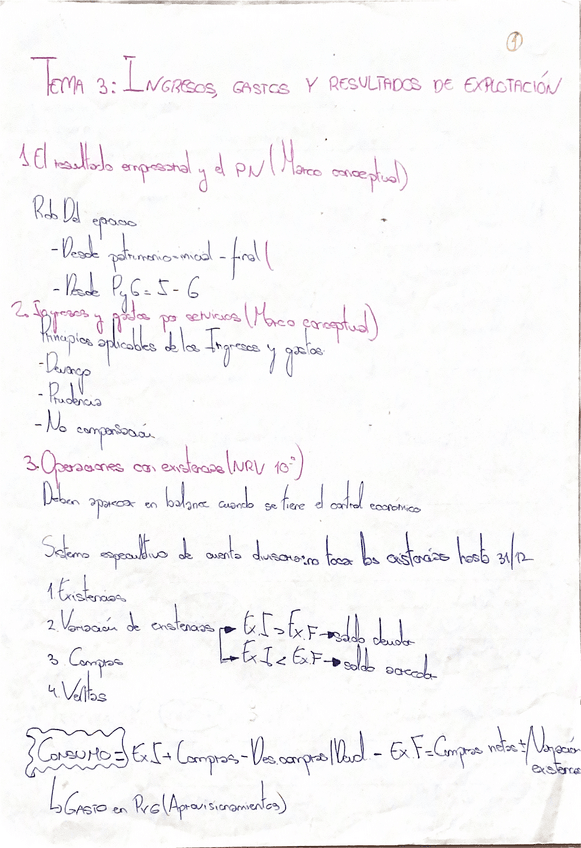 1
TEMA 3: INGRESOS, GASTOS Y RESULTADOS DE EXPLOTACIÓN
1. El resultado empresarial y el PN (Marco conceptual)
Rdo Del
-Desde patrimonio-inicial - final (
-Desde PyG = 5 - 6
2. Ingresos y gastos por servicios (Marco conceptual)
Principios aplicables de los Ingresos y gastos:
-Devengo
-Prudencia
-No compensación
3. Operaciones con existencias (NRV 10ª)
Deben aparecer en balance cuando se tiene el control económico
Sistema especulativo de cuenta divisoria: no tocar las existencias hasta 31/12
1. Existencias
2. Variación de existencias → Ex.I > Ex.F → saldo deudor
→ Ex.I < Ex.F → saldo acreedor
3. Compras
4. Ventas
CONSUMO = Ex.I + Compras - Des.compras/Devol - Ex.F = Compras netas ± Variación
existencias
↳ GASTO en PyG (Aprovisionamientos)